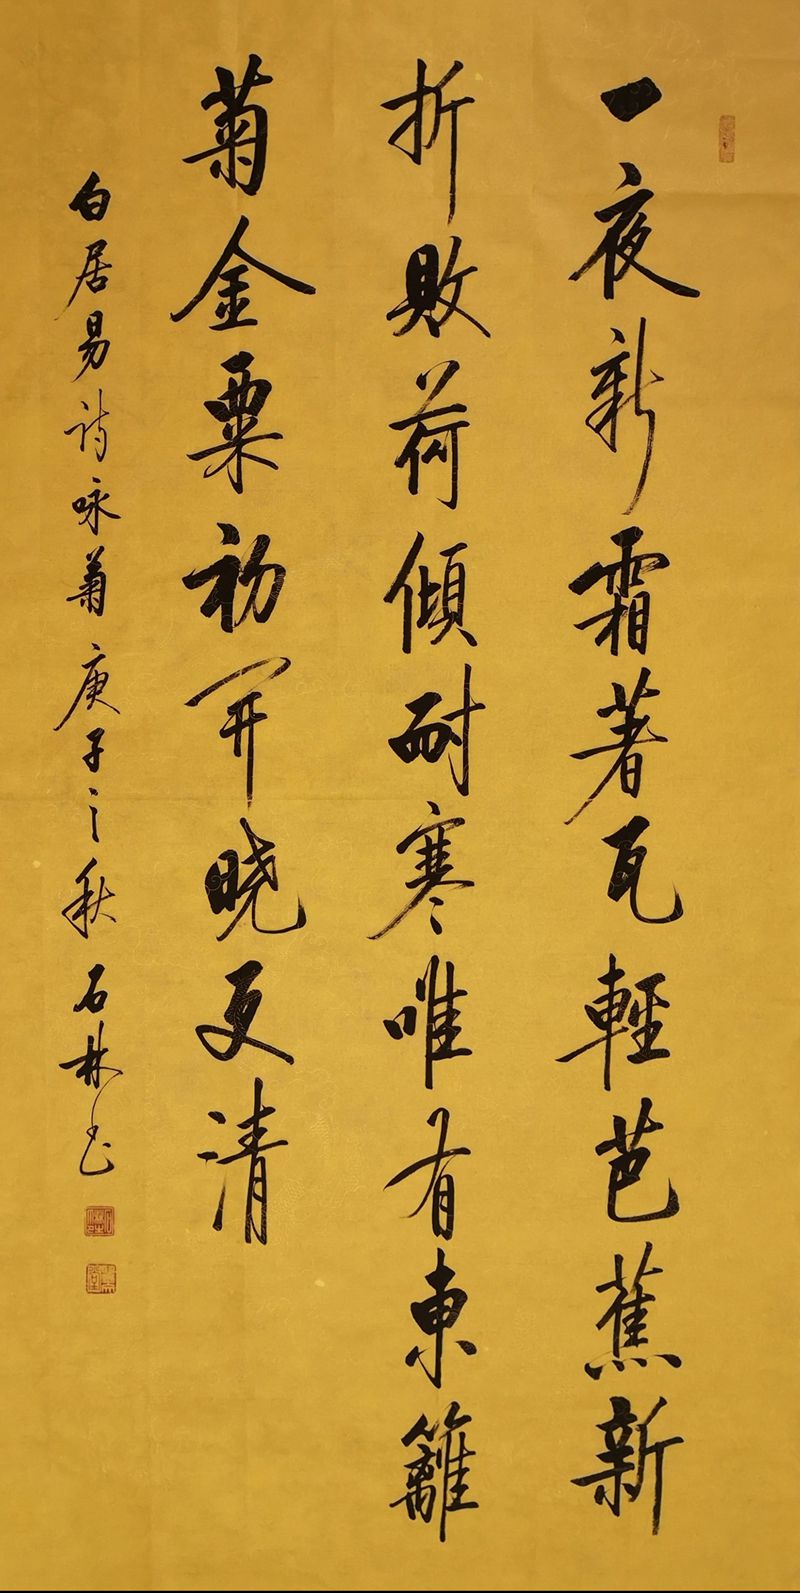 一夜新霜著瓦輕芭蕉新
折敗荷傾耐寒唯有東籬
菊金粟初开晓更清
白居易诗咏菊庚子之秋石林书